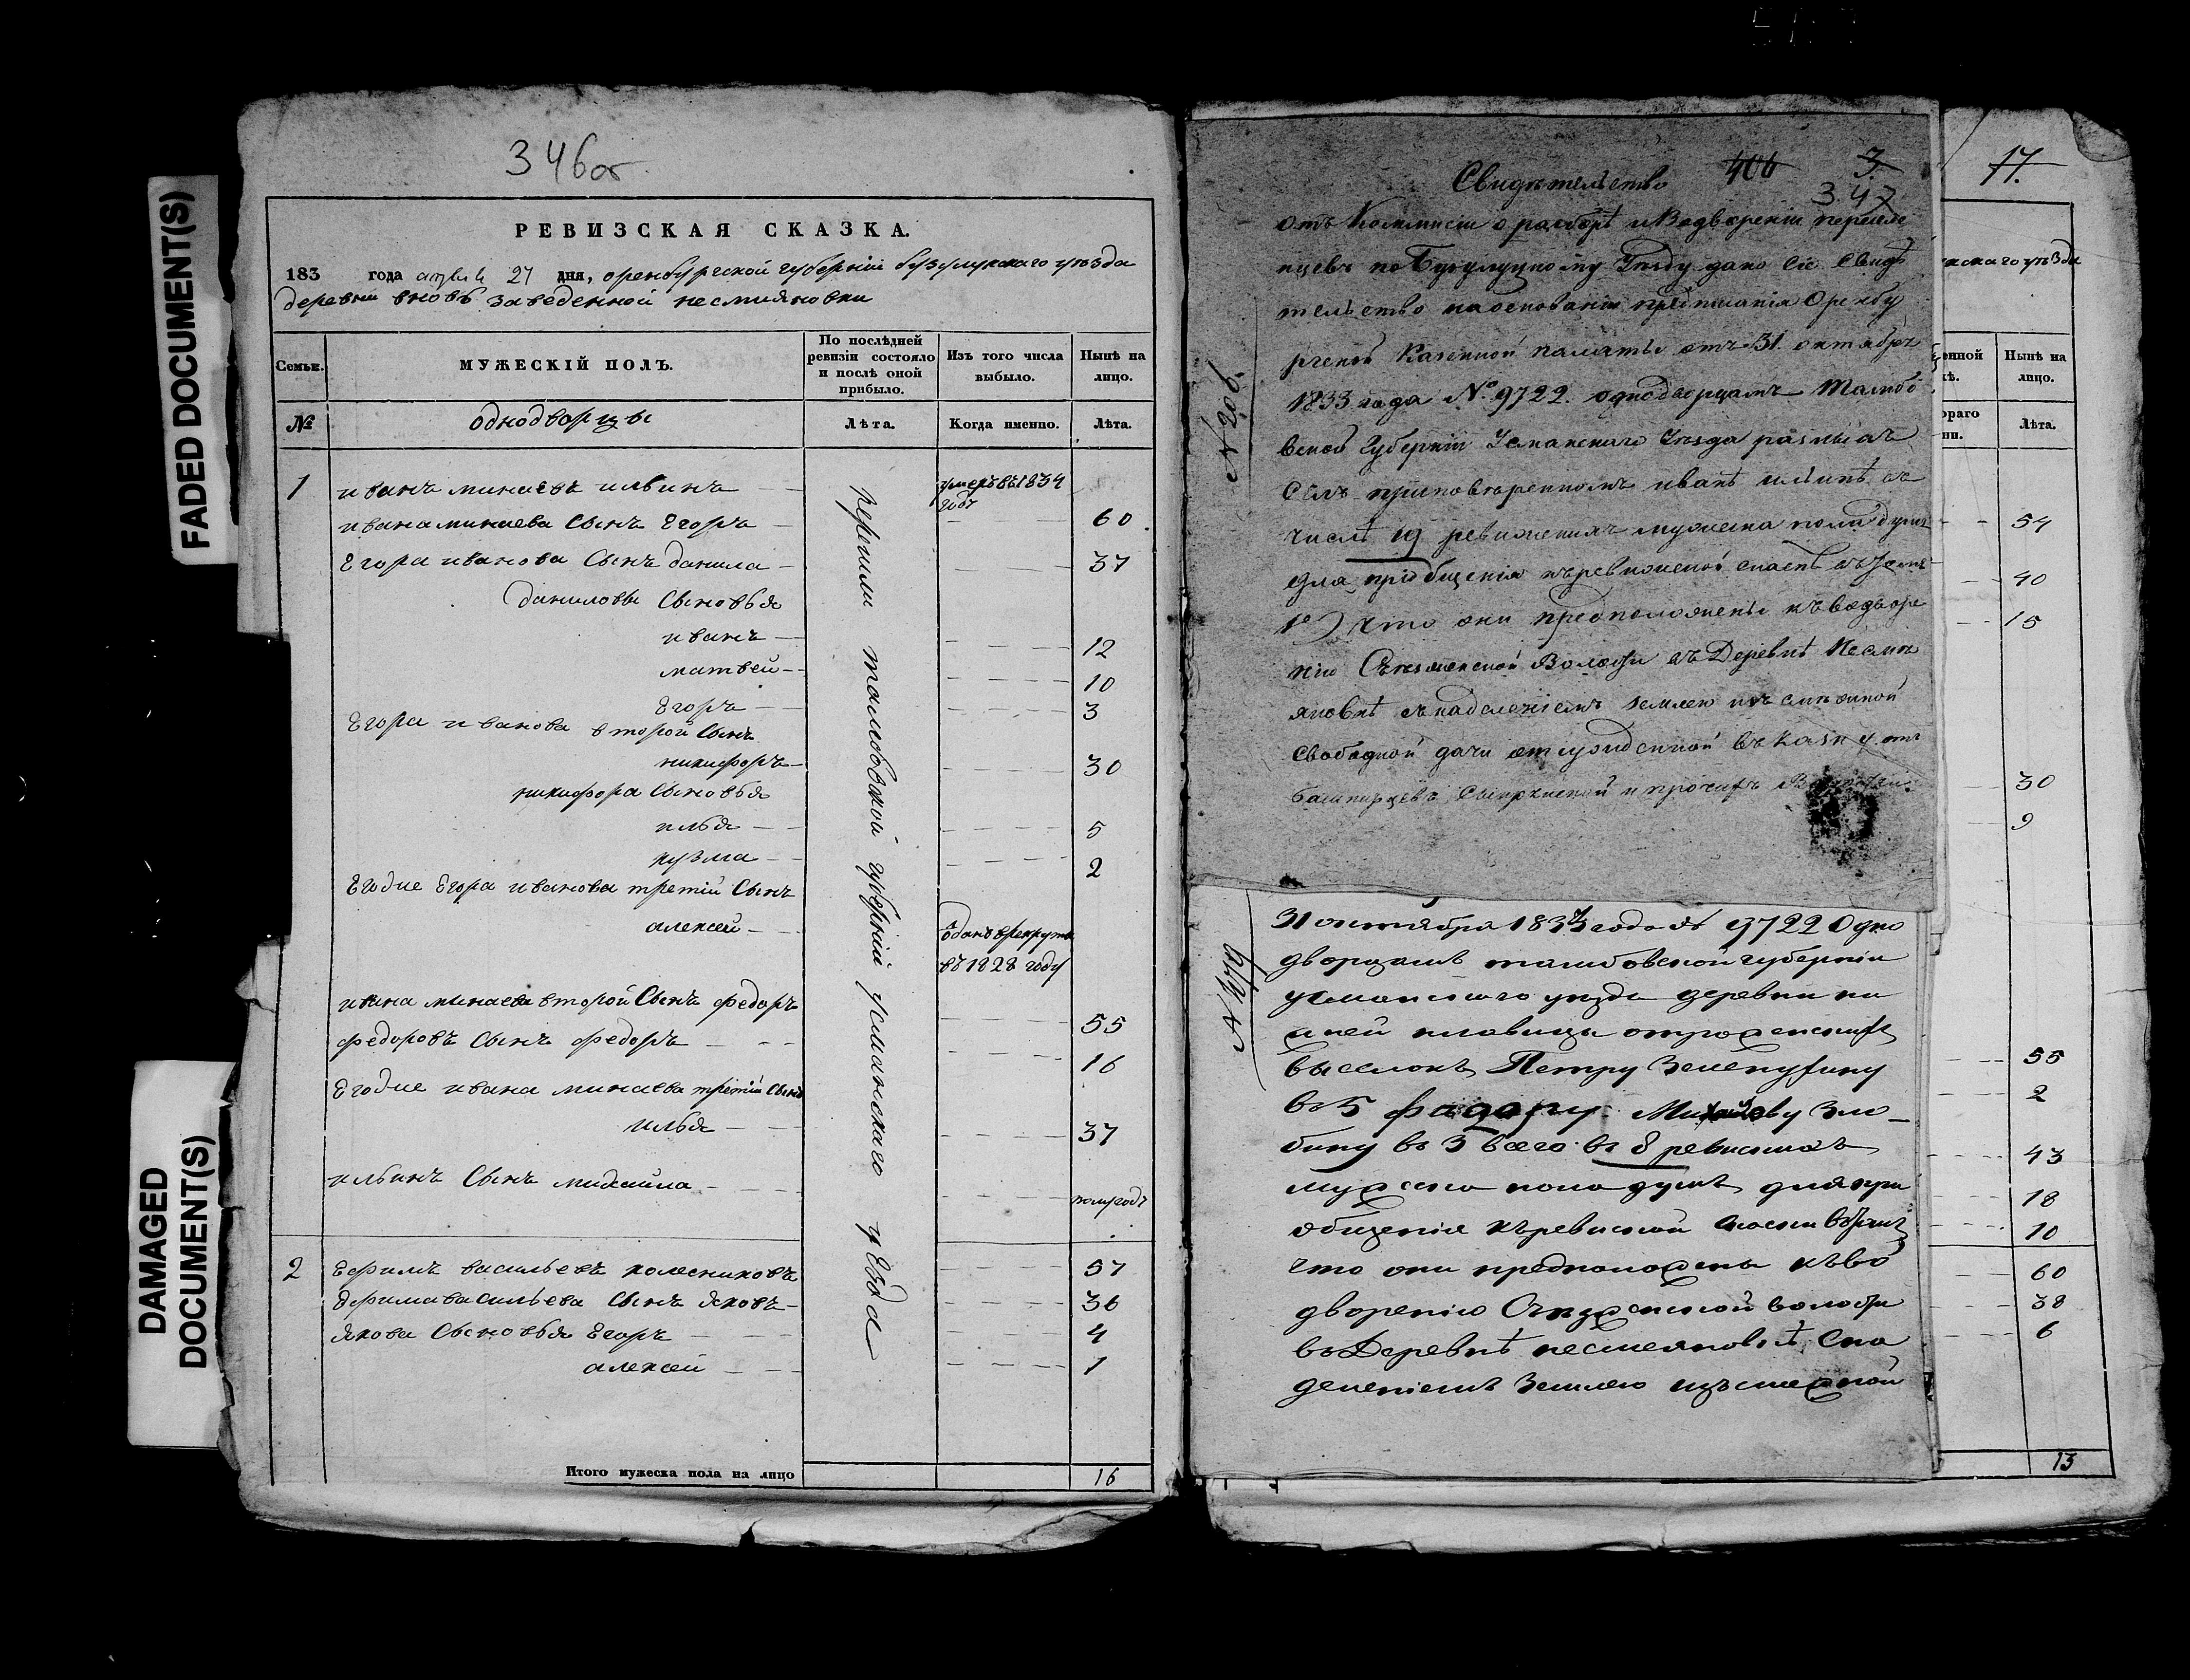 FADED DOCUMENT(S)
DAMAGED
DOCUMENT(S)
346об
РЕВИЗСКАЯ СКАЗКА.
183 года апреля 27 дня, оренбургской губерніи бузулукского уезда
деревни вновь заведенной несмияновки
Семьи.
МУЖЕСКІЙ ПОЛЪ.
По послѣдней ревизіи состояло и послѣ оной прибыло.
Изъ того числа выбыло.
Нынѣ на лицо.
№
однодворцы
Лѣта.
Когда именно.
Лѣта.
1 иванъ минаевъ ильинъ умеръ въ 1834 годе
ивана минаева сынъ Егоръ 60
Егора иванова сынъ данила 37
даниловы сыновья
иванъ 12
матвей 10
Егоръ 3
Егора иванова второй сынъ
никифоръ 30
никифора сыновья
илья 5
кузма 2
Егоже Егора иванова третій сынъ
алексей одан в рекруты
въ 1828 году
ивана минаева второй сынъ федоръ 55
федоровъ сынъ федоръ 16
Егоже ивана минаева третій сынъ
илья 37
ильинъ сынъ михайла полугодъ
2 Ефимъ васильевъ колесниковъ 57
Ефима васильева сынъ яковъ 36
якова сыновья Егоръ 4
алексей 1
тамбовской губерніи усманскаго уезда
Итого мужеска пола на лицо 16
406 3.
Свидѣтельство
347
отъ Коммисіи о разборѣ и Водвореніи переселе
нцевъ по Бузулуцкому Уезду дано сіе Свидѣ
тельство на основаніи предписанія Оренбу
ргской Казенной палаты отъ 31. октября
1833 года № 9722. однодворцамъ Тамбо
вской Губерніи Усманскаго Уезда разныхъ
Селъ иванѣ ильинѣ въ
числѣ 19 ревижскихъ мужска пола душъ
для пріобщенія къ ревижской сказкѣ въ томъ
1е) что они предположены къ водворе
нію Съезженской Волости въ Деревнѣ Несми
яновкѣ съ наделеніемъ землею изъ смежной
Свободной дачи отсужденной въ казну отъ
башкирцевъ и прочихъ
№ 206.
31 октября 1833 года № 9722 Одно
дворцамъ тамбовской губерніи
усманскаго уезда деревни
выселокъ Петру
въ 5 Михайлову Зло
бину въ 3 всего въ 8 ревижскихъ
мужска пола душъ для прі
общенія къ ревижской скаски въ томъ
что они предположены къ во
дворенію Съезженской волости
въ Деревнѣ несмеяновкѣ Сна
деленіемъ Землею изъ смежной
17.
скаго уѣзда
Нынѣ на лицо.
Лѣта.
54
40
15
30
9
55
2
43
18
10
60
38
6
13